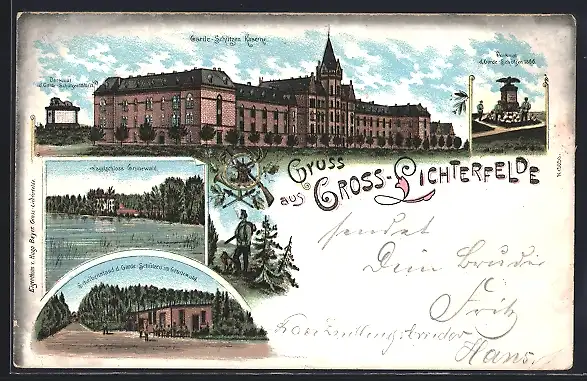 Garde-Schützen Kaserne
Denkmal
d. Garde-Schützen
Denkmal
d. Garde-Schützen 1866.
Jagdschloss Grunewald.
Gruss
aus Gross-Lichterfelde
Schiessstand d. Garde-Schützen im Grunewald.
Eigenthum v. Hugo Beyer, Gross-Lichterfelde
sendet
Dein Bruder
Fritz
Hans.